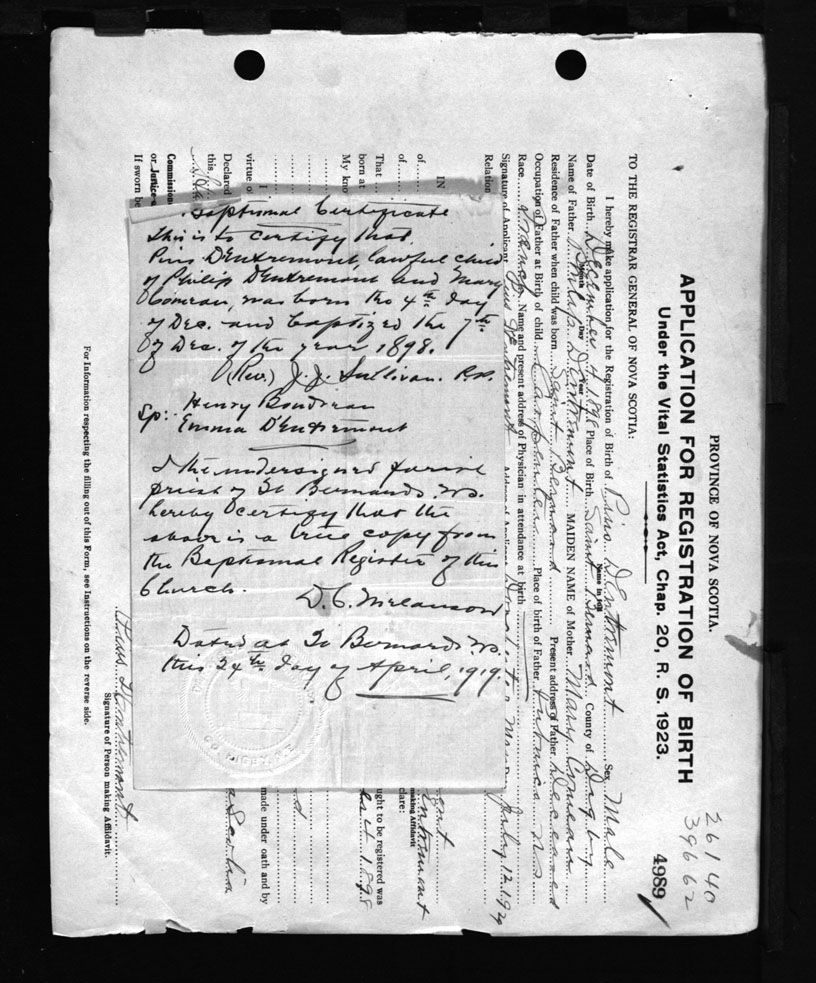 PROVINCE OF NOVA SCOTIA.
APPLICATION FOR REGISTRATION OF BIRTH
Under the Vital Statistics Act, Chap. 20, R. S. 1923.
26140
39662
4989
TO THE REGISTRAR GENERAL OF NOVA SCOTIA:
I hereby make application for the Registration of Birth of Pius Dentremont Sex Male
Name in full
Date of Birth December 4 1898 Place of Birth Saint Bernard County of Digby
Month Day Year
Name of Father Philip Dentremont MAIDEN NAME of Mother Mary Comeau
Residence of Father when child was born Saint Bernard Present address of Father Deceased
Occupation of Father at Birth of child Carpenter Place of birth of Father Pubnico NS
Race French Name and present address of Physician in attendance at birth
Signature of Applicant Pius Dentremont Address of Applicant July 12, 192
Relation
Baptismal Certificate
This is to certify that
Pius D'Entremont, lawful child
of Philip D'Entremont and Mary
Comeau, was born the 4th day
of Dec. and baptized the 7th
of Dec. of the year 1898.
(Rev.) J. J. Sullivan. P.P.
Sp: Henry Boudreau
Emma D'Entremont
I the undersigned parish
priest of St Bernards, N.S.
hereby certify that the
above is a true copy from
the Baptismal Register of this
Church.
D. C. Melanson
Dated at St Bernards N.S.
this 24th day of April, 1919.
IN
of
of
That
born at
My kno
I
virtue o
Declared
this
Commission
or Justice o
If sworn be
making Affidavit
clare:
ught to be registered was
4 1898
made under oath and by
a Scotia
Pius Dentremont
Signature of Person making Affidavit.
For Information respecting the filling out of this Form, see Instructions on the reverse side.